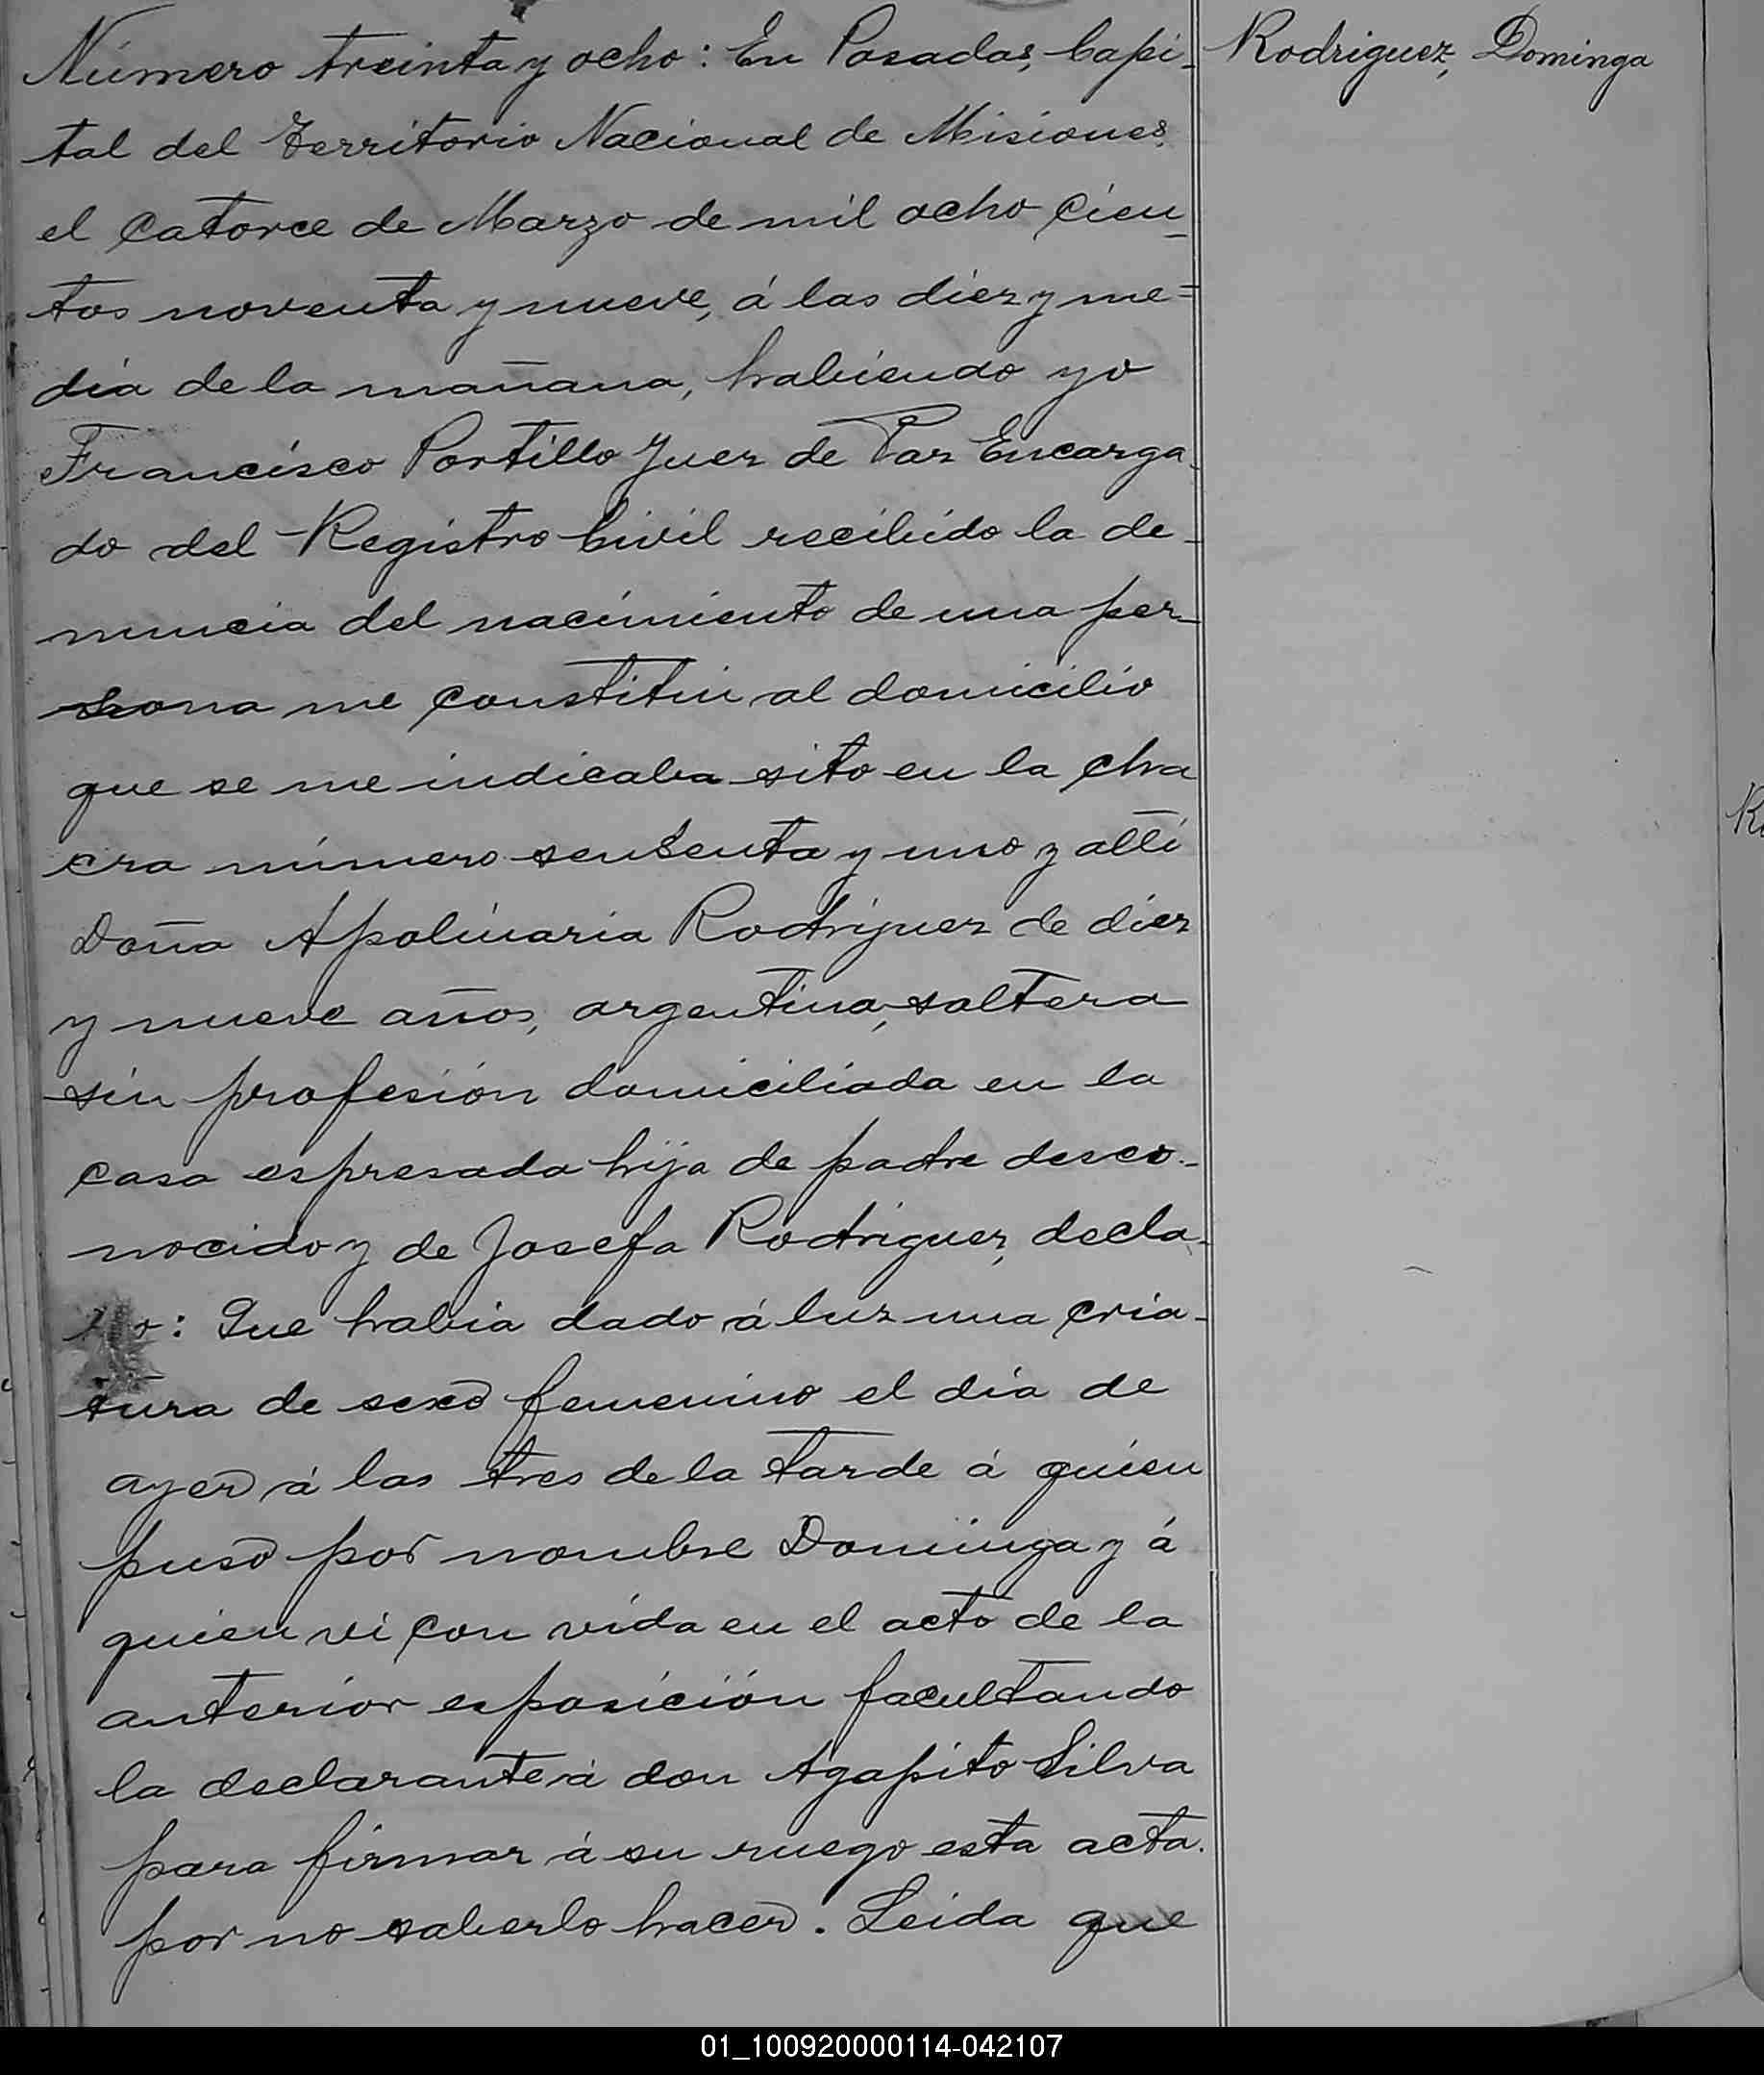 Número treinta y ocho: En Posadas, Capi-
tal del Territorio Nacional de Misiones,
el catorce de Marzo de mil ocho cien-
tos noventa y nueve, á las diez y me-
dia de la mañana, habiendo yo
Francisco Portillo Juez de Paz Encarga-
do del Registro Civil recibido la de-
nuncia del nacimiento de una per-
sona me constitui al domicilio
que se me indicaba sito en la cha
cra número sensenta y uno y allí
Doña Apolinaria Rodriguez de diez
y nueve años, argentina, soltera
sin profesión domiciliada en la
casa espresada hija de padre desco-
nocido y de Josefa Rodriguez, decla-
ro: Que habia dado á luz una cria-
tura de sexo femenino el día de
ayer á las tres de la tarde á quien
puso por nombre Dominga y á
quien vi con vida en el acto de la
anterior esposición facultando
la declarante á don Agapito Silva
para firmar á su ruego esta acta.
por no saberlo hacer. Leida que
Rodriguez, Dominga
01_100920000114-042107